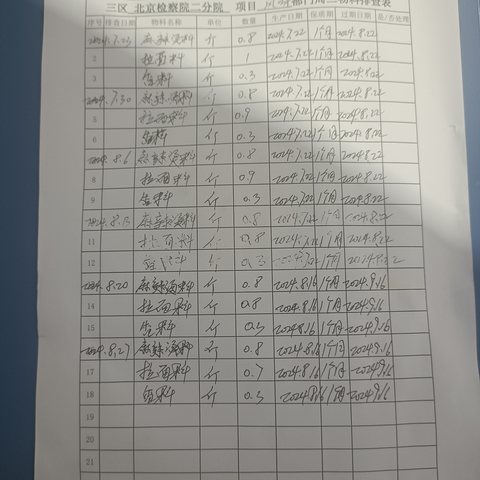 三区 北京检察院二分院 项目 部门周二物料排查表
序号 排查日期 物料名称 单位 数量 生产日期 保质期 过期日期 是/否处理
2024.7.23 麻辣烫料 斤 0.8 2024.7.22 1个月 2024.8.22
2 拉面料 斤 1 2024.7.22 1个月 2024.8.22
3 鱼料 斤 0.3 2024.7.22 1个月 2024.8.22
2024.7.30 麻辣烫料 斤 0.8 2024.7.22 1个月 2024.8.22
5 拉面料 斤 0.9 2024.7.22 1个月 2024.8.22
6 鱼料 斤 0.3 2024.7.22 1个月 2024.8.22
2024.8.6 麻辣烫料 斤 0.8 2024.7.22 1个月 2024.8.22
8 拉面料 斤 0.9 2024.7.22 1个月 2024.8.22
9 鱼料 斤 0.3 2024.7.22 1个月 2024.8.22
2024.8.13 麻辣烫料 斤 0.8 2024.7.22 1个月 2024.8.22
11 拉面料 斤 0.8 2024.7.22 1个月 2024.8.22
12 鱼料 斤 0.3 1个月 2024.8.22
2024.8.20 麻辣烫料 斤 0.8 2024.8.16 1个月 2024.9.16
14 拉面料 斤 0.8 2024.8.16 1个月 2024.9.16
15 鱼料 斤 0.3 2024.8.16 1个月 2024.9.16
2024.8.27 麻辣烫料 斤 0.8 2024.8.16 1个月 2024.9.16
17 拉面料 斤 0.7 2024.8.16 1个月 2024.9.16
18 鱼料 斤 0.3 2024.8.16 1个月 2024.9.16
19
20
21